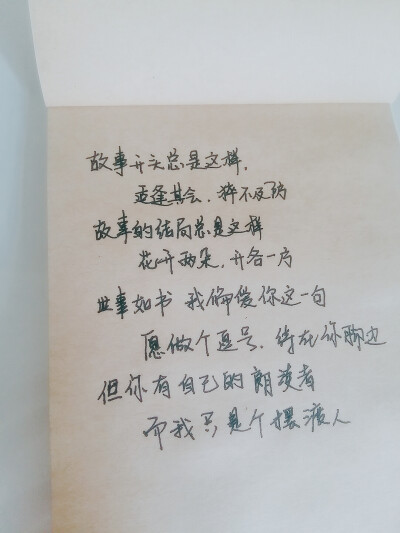 故事开头总是这样，
适逢其会，猝不及防
故事的结局总是这样
花开两朵，天各一方
世事如书 我偏爱你这一句
愿做个逗号，待在你脚边
但你有自己的朗读者
而我只是个摆渡人